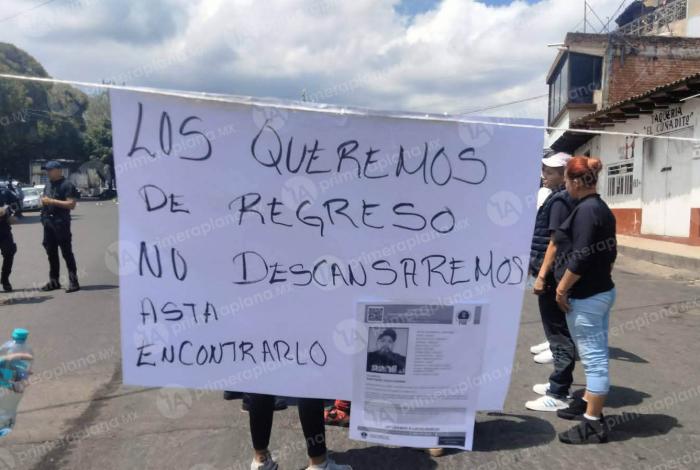 LOS QUEREMOS
DE REGRESO
NO DESCANSAREMOS
ASTA
ENCONTRARLO
TAQUERIA
"EL CUÑADITO"
primeraplana.mx